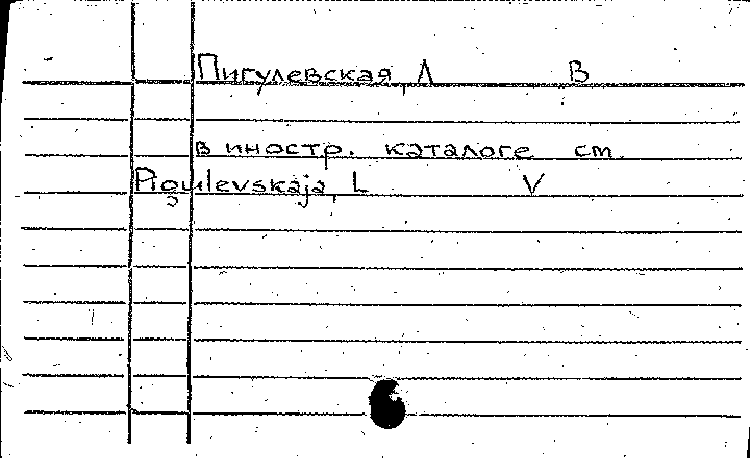 Пигулевская, Л В
в иностр. каталоге см.
Pigulevskaja, L V